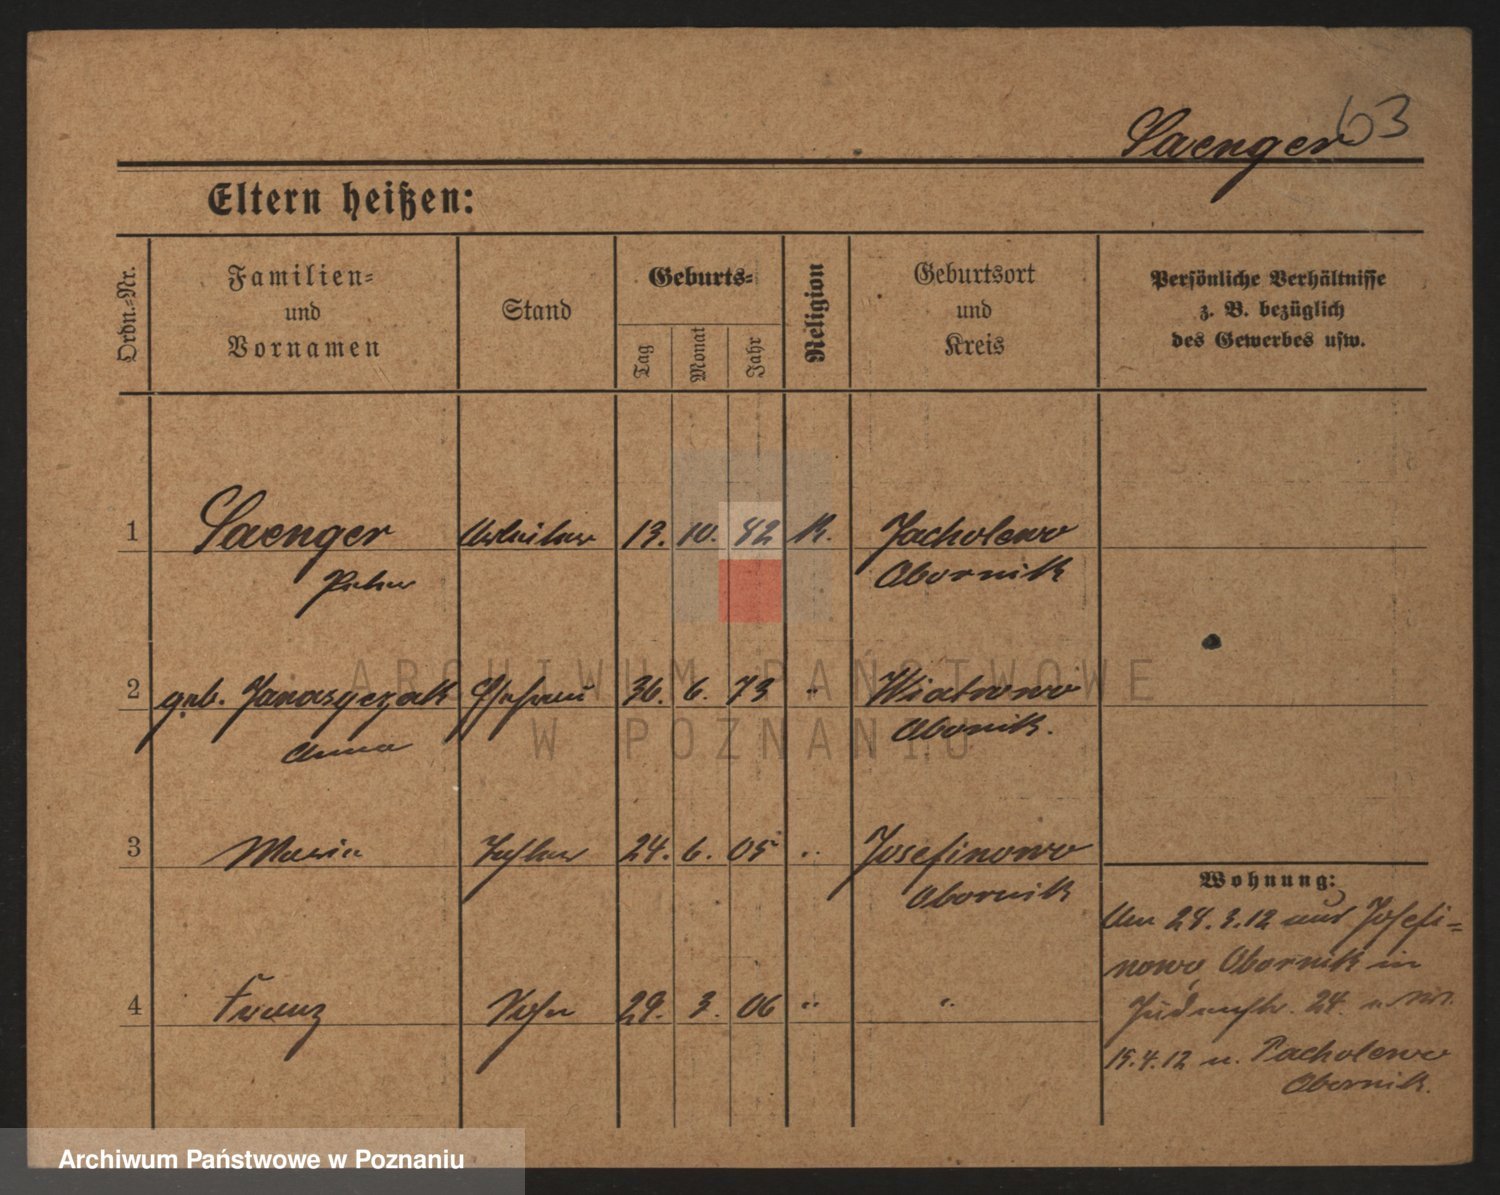 Saenger 63
Eltern heißen:
Ordn.-Nr.
Familien-
und
Vornamen
Stand
Geburts-
Tag
Monat
Jahr
Religion
Geburtsort
und
Kreis
Persönliche Verhältnisse
z. B. bezüglich
des Gewerbes usw.
1 Saenger Arbeiter 13. 10. 82 K. Pacholewo
Peter Obornik
ARCHIWUM PAŃSTWOWE
W POZNANIU
2 geb. Janaszczak Ehefrau 6. 73 " Wiatrowo
Anna Obornik.
3 Maria Tochter 24. 6. 05 " Josefinowo
Obornik
4 Franz Sohn 29. 3. 06 " "
Wohnung:
Am 28.3.12 aus Josefi-
nowo, Obornik in
Judenstr. 24.
15.4.12 n. Pacholewo
Obornik.
Archiwum Państwowe w Poznaniu